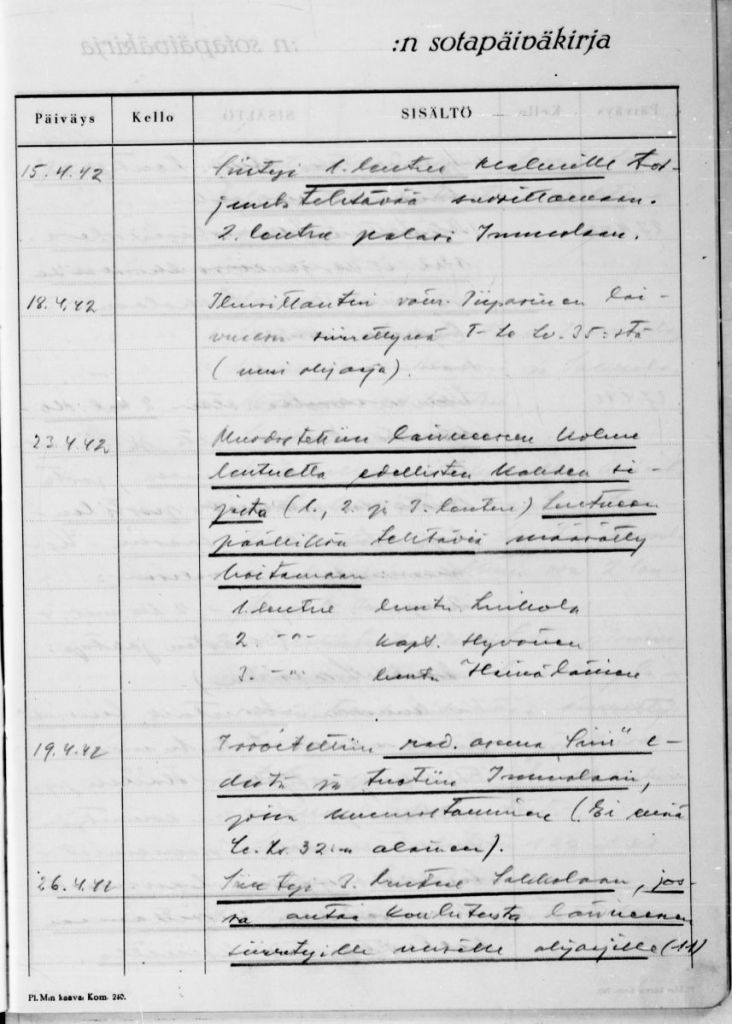 :n sotapäiväkirja
Päiväys Kello SISÄLTÖ
15.4.42 Siirtyi 1. lentue Malmille tor-
junta tehtävää suorittamaan.
2. lentue palasi Immolaan.
18.4.42 Ilmoittautui vänr. Piiparinen lai-
vueeseen siirrettynä T-Le Lv. 35:stä
(uusi ohjaaja).
23.4.42 Muodostettiin laivueeseen kolme
lentuetta edellisten kahden si-
jasta (1., 2. ja 3. lentue) Lentueen
päällikön tehtäviä määrätty
hoitamaan:
1. lentue luutn
2. -"- kapt. Hyvönen
3. -"- luutn Heinäläinen
19.4.42 Irroitettiin rad. asema "Siiri"
ja tuotiin Immolaan,
jossa kunnostaminen (Ei enää
Le.Lv. 32:n alainen).
26.4.42 Siirtyi 3. lentue Sakkolaan, jos-
sa antaa koulutusta laivueeseen
siirretyille uusille ohjaajille (11)
Pl. M:n kaava: Kom. 240.